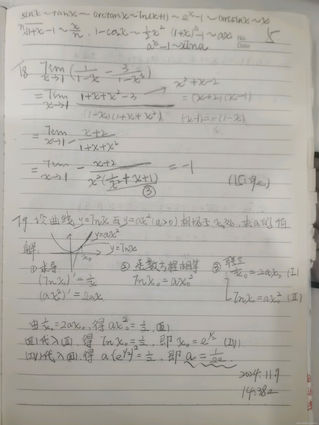 sinx ~ tanx ~ arctanx ~ ln(x+1) ~ e^x-1 ~ arcsinx ~ x
ⁿ√(1+x) -1 ~ x/n, 1-cosx ~ 1/2 x² (1+x)^a -1 ~ ax
a^x-1 ~ xlna
5
18. lim x→1 (1/(1-x) - 3/(1-x³))
x²+x-2
= lim x→1 (1+x+x²-3)/((1-x)(1+x+x²))
= (x+2)(x-1)
(x-1)=-(1-x)
= lim x→1 - (x+2)/(1+x+x²)
= lim x→1 - (x+2)/(x²(1/x²+1/x+1)) = -1
③
19. 设曲线 y=lnx 与 y=ax² (a>0) 相切于 x=x₀, 求a的值
解:
y=ax²
y=lnx
x₀
① 求导 ② 函数方程相等 ③ 联立
(lnx)'=1/x lnx₀=ax₀² 1/x₀=2ax₀ (I)
(ax²)'=2ax lnx₀=ax₀² (II)
由 1/x₀=2ax₀, 得 ax₀²=1/2 (III)
(III)代入(II), 得 lnx₀=1/2, 即 x₀=e^(1/2) (IV)
(IV)代入(III), 得 a(e^(1/2))²=1/2, 即 a=1/(2e)
2024.11.9